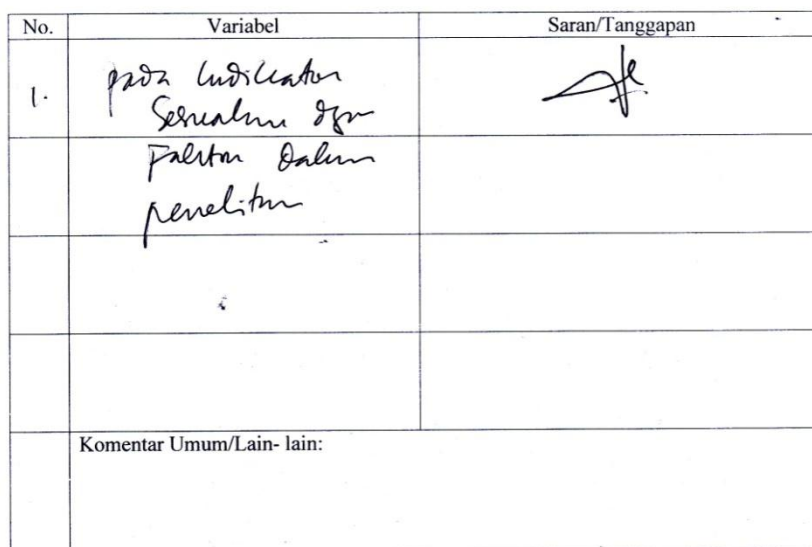 No. Variabel Saran/Tanggapan
1. pada Indikator
Sesuaikan dgn
Faktor Dalam
penelitian
Komentar Umum/Lain- lain: